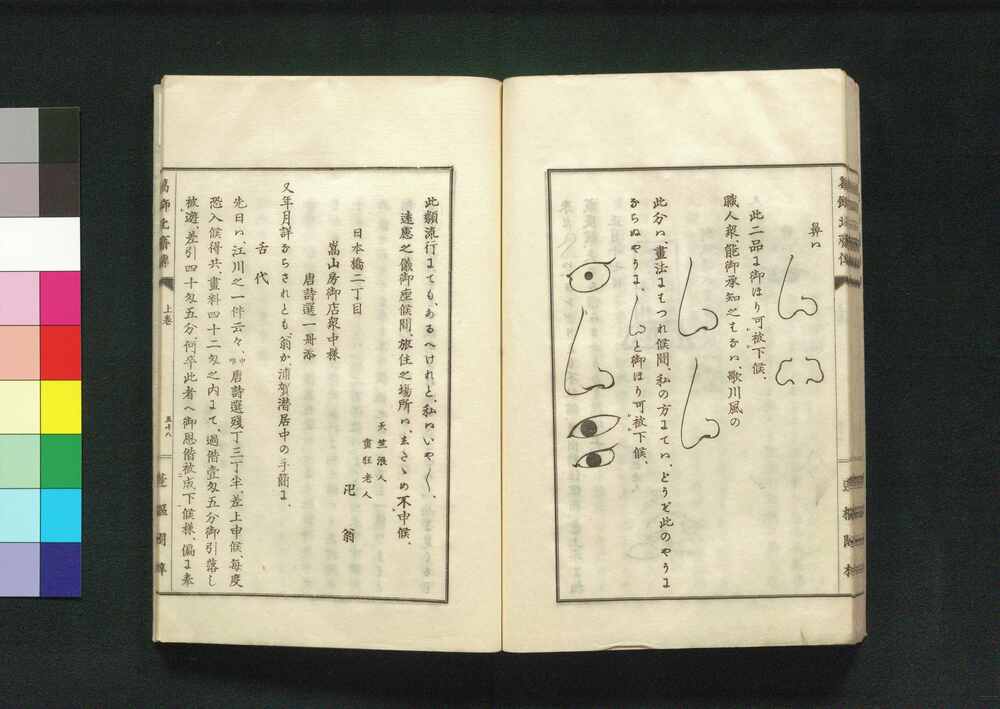 鼻ハ
此二品ニ御ほり可被下候、
職人衆、能御承知之もなハ、歌川風の
此分ハ、畫法にもつれ候間、私の方にてハ、どうぞ此のやうに
ならぬやうに、
と御ほり可被下候、
此類流行にても、あるへけれと、私ハいや〱、
遠慮之儀御座候間、旅住之場所ハ、まさゝめ不申候、
日本橋二丁目
嵩山房御店衆中様
唐詩選一冊添
天竺浪人
畫狂老人
卍翁
又年月詳ならされとも、翁か浦賀潜居中の手簡に、
舌代
先日ハ、江川之一件云々、中略唐詩選残丁三丁半、差上申候、毎度
恐入候得共、畫料四十二匁之内にて、過借壹匁五分御引落し
被遊、差引四十匁五分、何卒此者へ御恩借被成下候様、偏に奉
葛飾北齋傳
上巻
五十八
蓬樞閣梓